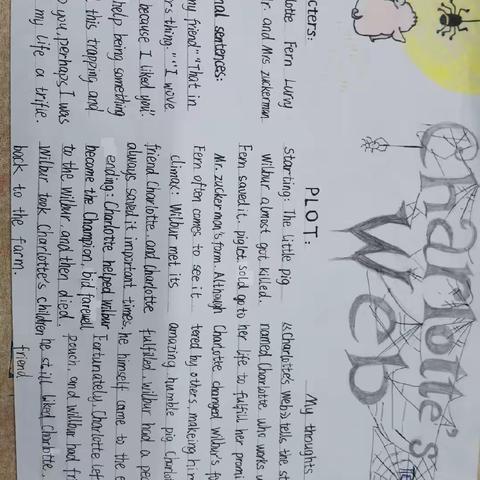 Charlotte's
Web
cters:
lotte Fern Lurvy
r. and Mrs zuckerman
nal sentences:
my friend" "That in
rs thing." "I wove
because I liked you.
help being something
this trapping and
you, perhaps I was
my life a trifle.
PLOT:
Starting: The little pig
Wilbur almost got killed.
Fern saved it, piglet sold go to
Mr. zuckerman's form. Although
Fern often comes to see it
climax: Wilbur met its
friend Charlotte, and Charlotte
always saved it important times,
ending: Charlotte helped Wilbur
become the Champion, bid farewell
to the wilbur, and then died.
Wilbur took Charlotte's children
back to the farm.
My thoughts
《Charlotte's Web》 tells the st
named Charlotte, who works w
her life to fulfill her promi
Charlotte changed wilbur's f
tered by others, makeing him
amazing, humble pig. Charlo
fulfilled, wilbur had a pea
he himself came to the e
Fortunately, Charlotte lef
pouch, and wilbur had fr
he still liked Charlotte.
friend